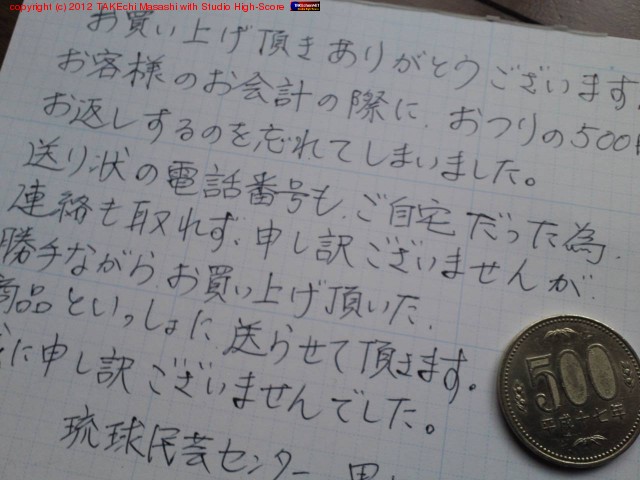 copyright (c) 2012 TAKEchi Masashi with Studio High-Score
お買い上げ頂きありがとうございます
お客様のお会計の際に、おつりの500円
お返しするのを忘れてしまいました。
送り状の電話番号も、ご自宅だった為、
連絡も取れず、申し訳ございませんが、
勝手ながら、お買い上げ頂いた、
商品といっしょに、送らせて頂きます。
に申し訳ございませんでした。
琉球民芸センター
500
平成十七年